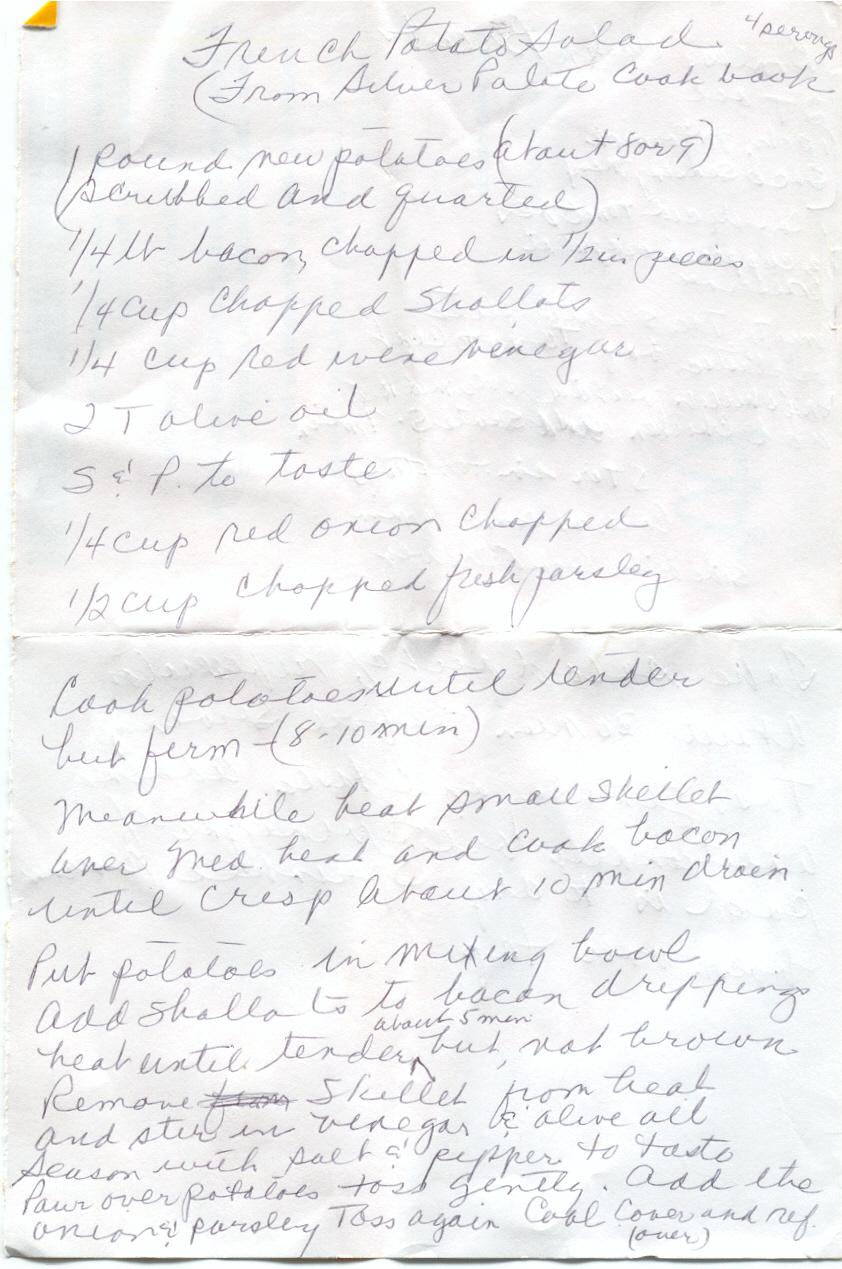 French Potato Salad 4 servings
(From Silver Palate Cook book
1 pound new potatoes (about 8 or 9)
(scrubbed and quarted)
1/4 lb bacon, chopped in 1/2 in pieces
1/4 cup chopped Shallots
1/4 cup red wine vinegar
2 T olive oil
S & P. to taste
1/4 cup red onion chopped
1/2 cup chopped fresh parsley
Cook potatoes until tender
but firm - (8-10 min)
Meanwhile heat small skillet
over med. heat and cook bacon
until crisp about 10 min drain.
Put potatoes in mixing bowl
Add shallots to bacon drippings
about 5 min
heat until tender, but not brown
Remove from Skillet from heat
and stir in vinegar & olive oil
Season with salt & pepper to taste
Pour over potatoes toss gently. Add the
onion & parsley Toss again Cool Cover and ref.
(over)